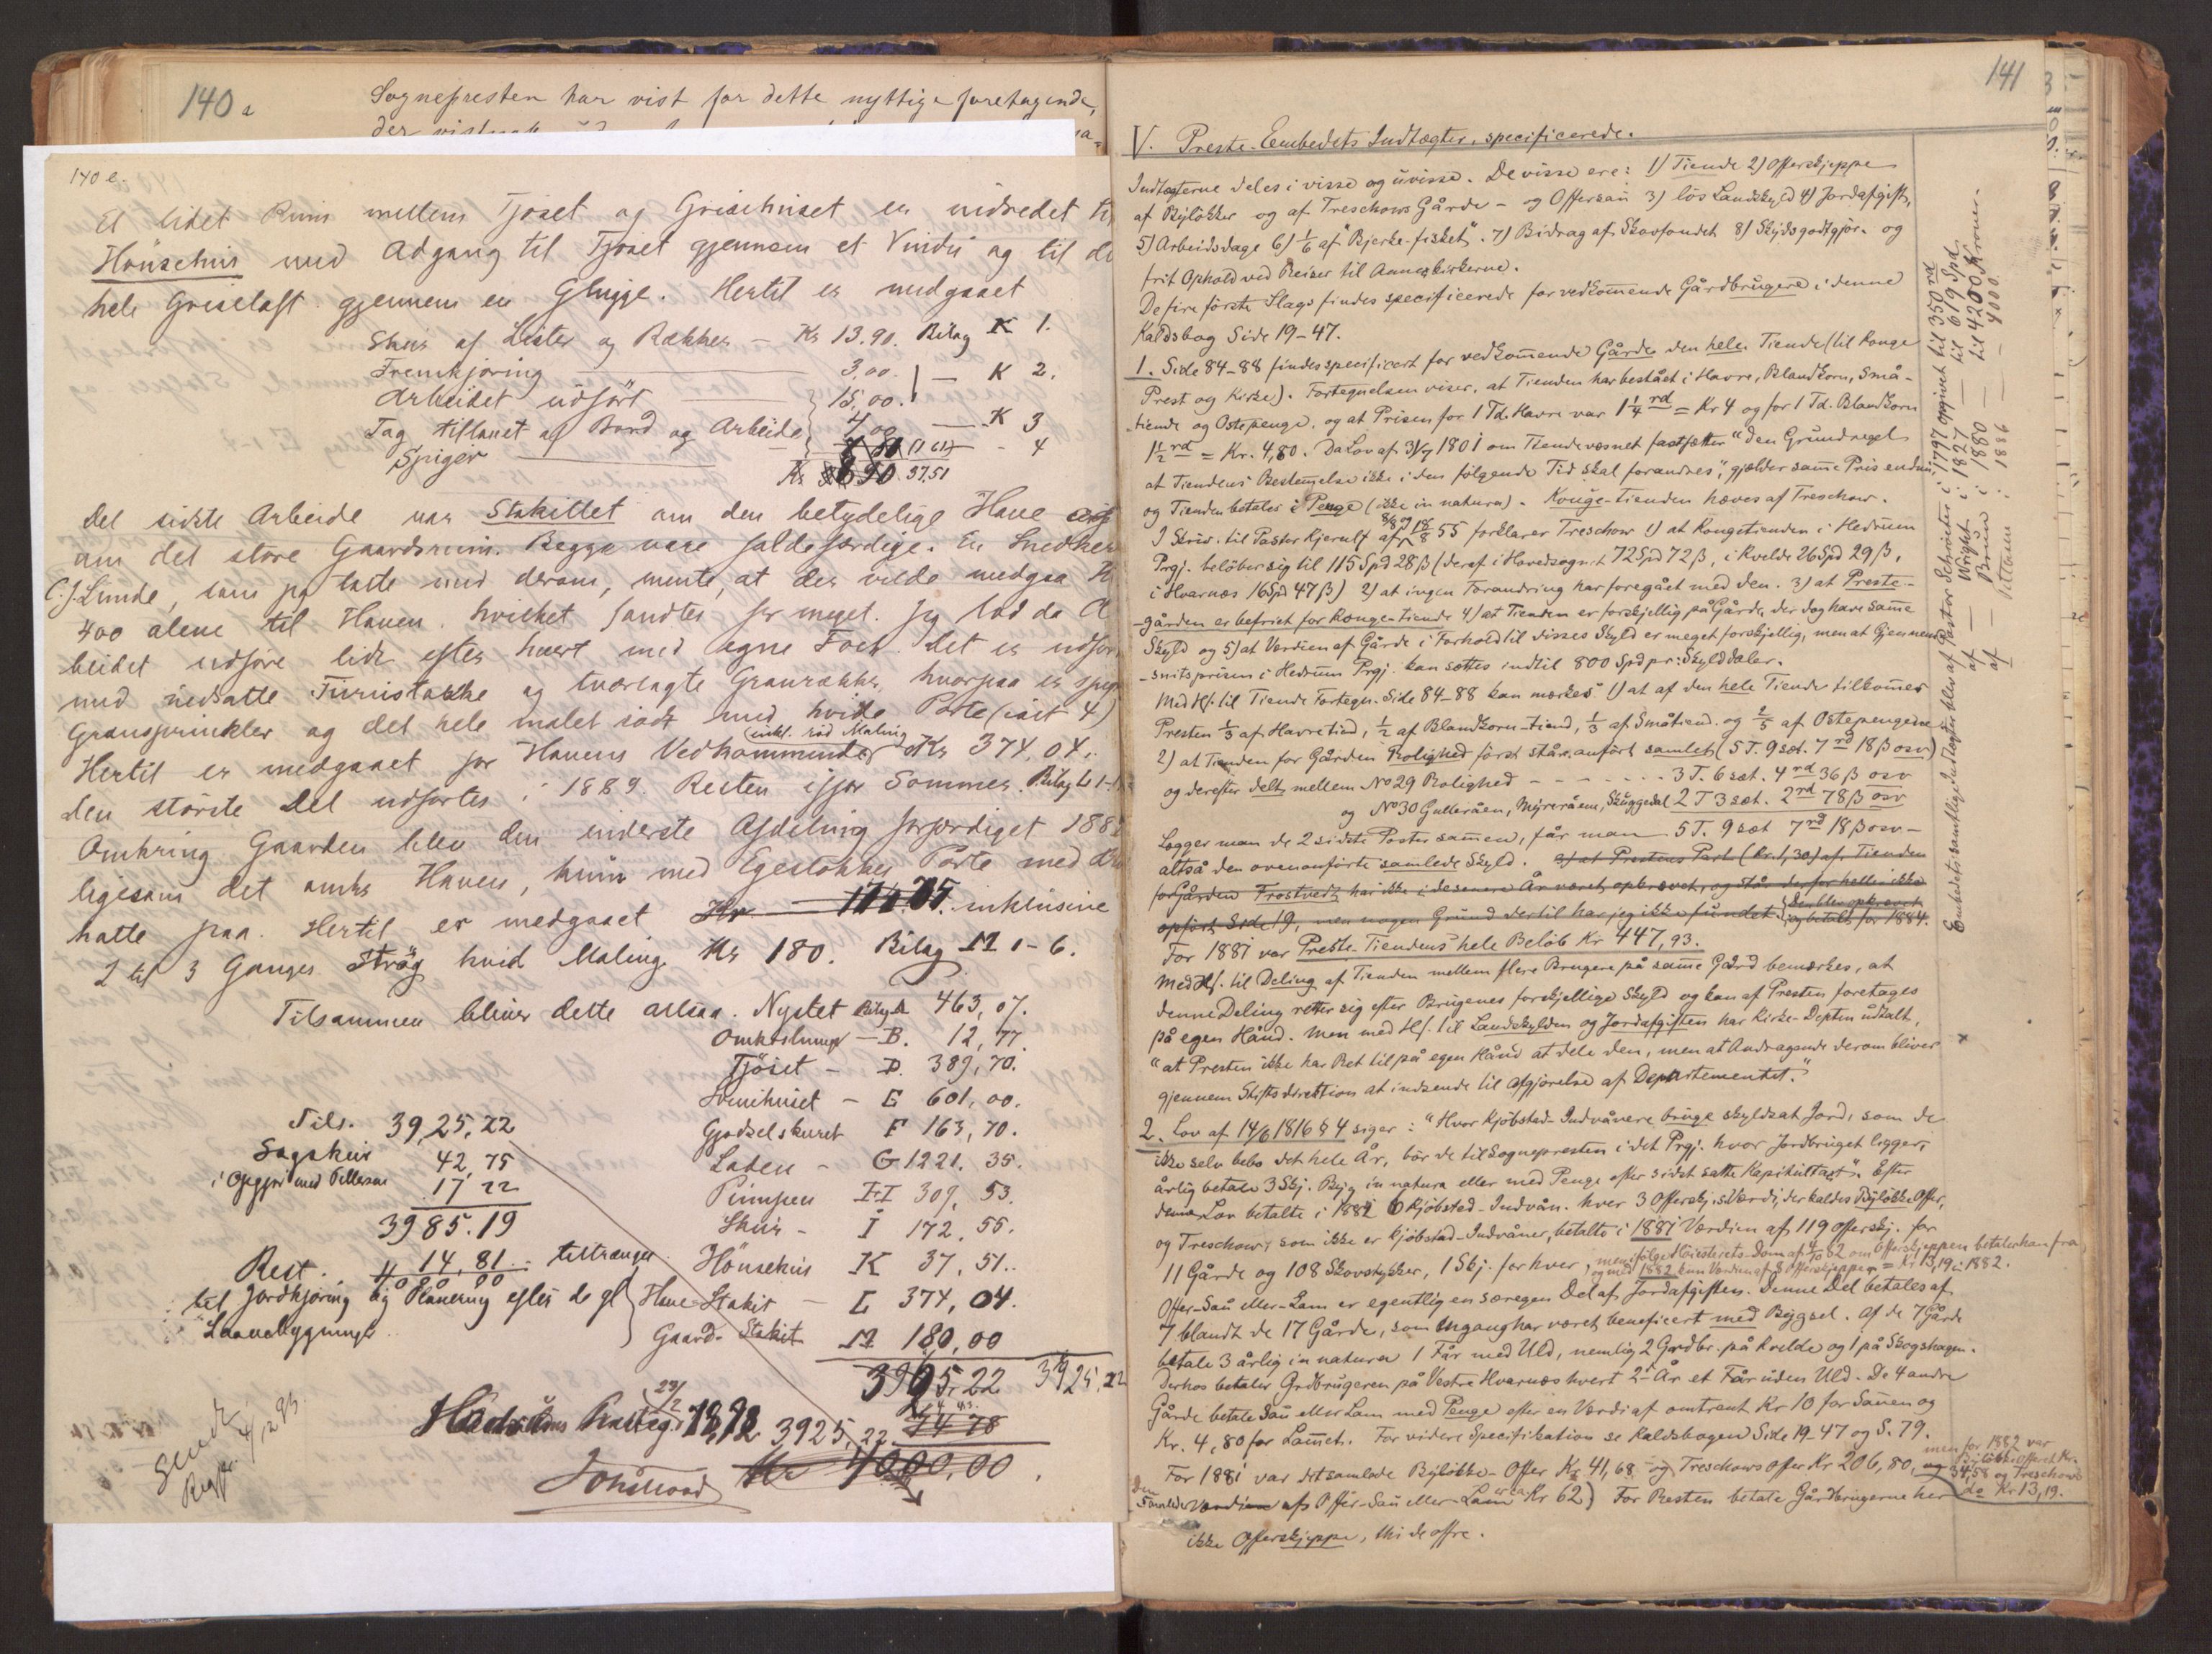 140 a
Sognepresten har vist for dette nyttige foretagende,
140 e.
Et lidet Rum mellem Fjøset og Grisehuset er indredet ti
Hönsehus med Adgang til Fjøset gjennem et Vindu og til de
hele Griseloft gjennem en Glugge. Hertil er medgaaet
Skur af Lister og Rækker — Kr 13.90. Bilag K 1.
Fremkjøring — 3,00. — K 2.
Arbeidet udført — 15,00.
Tag tillavet af Bord og Arbeide 4,00 — K 3
Spiger — 4
Kr 37,51
Det sidste Arbeide var Stakittet om den betydelige Have
om det store Gaardsrum. Begge vare faldefærdige. En Snedker
C. J. Lunde, som paatalte med derom, mente, at der vilde medgaa
400 alene til Haven. hvilket fandtes for meget. Jeg lod da A
beidet udføre lidt efter hvert med egne Folk. Det er udfør
med nedsatte Furustokke og tværlagte Granrækker, hvorpaa er
Gransprinkler og det hele malet rødt med hvide Porte (i alt 4)
(inkl. rød Maling
Hertil er medgaaet for Havens Vedkommende Kr 374,04.
den største Del udførtes i 1889. Resten ifjor Sommer. Bilag L 1-
Omkring Gaarden blev den inderste Afdeling forfærdiget 188
ligesom det omkr Haven, kun med Egestokker Porte med
hatte paa. Hertil er medgaaet inklusive
2 til 3 Ganges Strøg hvid Maling Kr 180. Bilag M 1-6.
Tilsammen bliver dette altsaa. Nystet Bilag A 463,07.
— B. 12,77.
Fjöset — D. 389,70.
Svinehuset — E 601,00.
Gjødselskuret F 163,70.
Laden — G 1221.35.
Pumpen H 309,53.
Skur — I 172,55.
Hönsehus K 37,51.
Have Stakit — L 374,04.
Gaard. Stakit M 180,00
3925,22
Tils. 3925,22
Sagskur 42,75
i Opgjør med Pettersen 17 22
3985.19
Rest. 14,81 tiltrænges
4000 00
til Jordkjøring og Planering efter de gl
Laavebygninger
23/2
3925,22
Kr 4000,00
Sendt
4/12 93.
141
V. Preste-Embedets Indtægter, specificerede.
Indtægterne deles i visse og uvisse. De visse ere: 1) Tiende 2) Offerskjeppe
af Byløkker og af Treschows Gårde – og Offersau 3) løs Landskyld 4) Jordafgift,
5) Arbeidsdage 6) 1/6 af "Bjerke-fisket". 7) Bidrag af Skovfondet 8) Skydsgodtgjør. og
frit Ophold ved Reiser til Annexkirkerne.
De fire første Slags findes specificerede for vedkommende Gårdbrugere i denne
Kaldsbog Side 19-47.
1. Side 84-88 findes specificert for vedkommende Gårde den hele Tiende (til Konge
Prest og Kirke). Fortegnelsen viser, at Tienden har bestået i Havre, Blandkorn, Små-
-tiende og Ostepenge, og at Prisen for 1 Td. Havre var 1¼ rd = Kr 4 og for 1 Td. Blandkorn
1½ rd = Kr. 4,80. Da Lov af 31/7 1801 om Tiendevæsnet fastsætter "den Grundregel
at Tiendens Bestemmelse ikke i den følgende Tid skal forandres", gjælder samme Pris endnu,
og Tienden betales i Penge (ikke in natura). Konge-Tienden hæves af Treschow.
I Skriv. til Pastor Kjerulf af 18/8 55 forklarer Treschow 1) at Kongetienden i Hedrum
Prgj. beløber sig til 115 Spd 28 β (deraf i Hovedsognet 72 Spd 72 β, i Kvelde 26 Spd 29 β,
i Hvarnæs 16 Spd 47 β) 2) at ingen Forandring har foregået med den. 3) at Preste-
-gården er befriet for Konge-tiende 4) at Tienden er forskjellig på Gårde, der dog have samme
Skyld og 5) at Værdien af Gårde i Forhold til disses Skyld er meget forskjellig, men at Gjennem-
-snitsprisen i Hedrum Prgj. kan sættes indtil 800 Spd pr: Skylddaler.
Med Hs. til Tiende Fortegn. Side 84-88 kan mærkes 1) at af den hele Tiende tilkommer
Presten 1/3 af Havretiend, 1/2 af Blandkorn-tiend, 1/3 af Småtiend. og 2/5 af Ostepengene
2) at Tienden for Gården Rolighed først står anført samlet (5 T. 9 sæt. 7 rd 18 β osv)
og derefter delt mellem No 29 Rolighed - - - - - 3 T. 6 sæt. 4 rd 36 β osv
og No 30 Gulleråen, Myreråen, Skuggedal 2 T 3 sæt. 2 rd 78 β osv
Lægger man de 2 sidste Poster sammen, får man 5 T. 9 sæt 7 rd 18 β osv –
altså den ovenanførte samlede Skyld. 3) at Prestens Part (Kr. 1,30) af Tienden
for Gården Frostvedt har ikke i de senere År været opkrævet, og står derfor heller ikke
opført Side 19, men nogen Grund dertil har jeg ikke fundet. Den blev opkrævet
og betalt for 1884.
For 1881 var Preste-Tiendens hele Beløb Kr 447,93.
Med Hs. til Deling af Tienden mellem flere Brugere på samme Gård bemærkes, at
denne Deling retter sig efter Brugenes forskjellige Skyld og kan af Presten foretages
på egen Hånd. Men med Hs. til Landskylden og Jordafgiften har Kirke-Depten udtalt,
"at Presten ikke har Ret til på egen Hånd at dele den, men at Andragende derom bliver
gjennem Stiftsdirektion at indsende til Afgjørelse af Departementet."
2. Lov af 14/6 1816 § 4 siger: "Hvor Kjøbstad-Indvånere bruge skyldsat Jord, som de
ikke selv bebo det hele År, bør de til Sognepresten i det Prgj. hvor Jordbruget ligger,
årlig betale 3 Skj. Byg in natura eller med Penge efter sidst satte Kapitultaxt". Efter
denne Lov betalte i 1882 6 Kjøbstad-Indvån. hver 3 Offerskj.s Værdi, der kaldes Byløkke Offer,
og Treschow, som ikke er Kjøbstad-Indvåner, betalte i 1881 Værdien af 119 Offerskj. for
11 Gårde og 108 Skovstykker, 1 Skj. for hver, men ifølge Høiesterets-Dom af 4/10 82 om Offerskjeppen betaler han fra
og med 1882 kun Værdien af 3 Offerskjepper = Kr 13,19 i 1882.
Offer-Sau eller-Lam er egentlig en særegen Del af Jordafgiften. Denne Del betales af
7 blandt de 17 Gårde, som engang har været beneficert med Bygsel. Af de 7 Gårde
betale 3 årlig in natura 1 Får med Uld, nemlig 2 Gårdbr. på Kvelde og 1 på Skogshagen.
Derhos betaler Grdbrugeren på Vestre Hvarnæs hvert 2det År et Får uden Uld. De 4 andre
Gårde betale Sau eller Lam med Penge efter en Værdi af omtrent Kr 10 for Sauen og
Kr. 4,80 for Lammet. For videre Specifikation se Kaldsbogen Side 19-47 og S. 79.
For 1881 var det samlede Byløkke-Offer Kr 41,68 og Treschows Offer Kr 206,80, men for 1882 var
Byløkke Offeret Kr.
34,58 og Treschows
do Kr 13,19.
den samlede Værdi af Offer-Sau eller-Lam ca Kr 62) For Resten betale Gårdbrugerne her
ikke Offerskjeppe, thi de ofre.
Embedets samtlige Indtægter blev af Pastor Schrøter i 1797 opgivet til 350 rd
af — Wright i 1827 — til 619 Spd.
af — Brun i 1880 — til 4200 Kroner.
af — Pettersen i 1886 — - 4000.